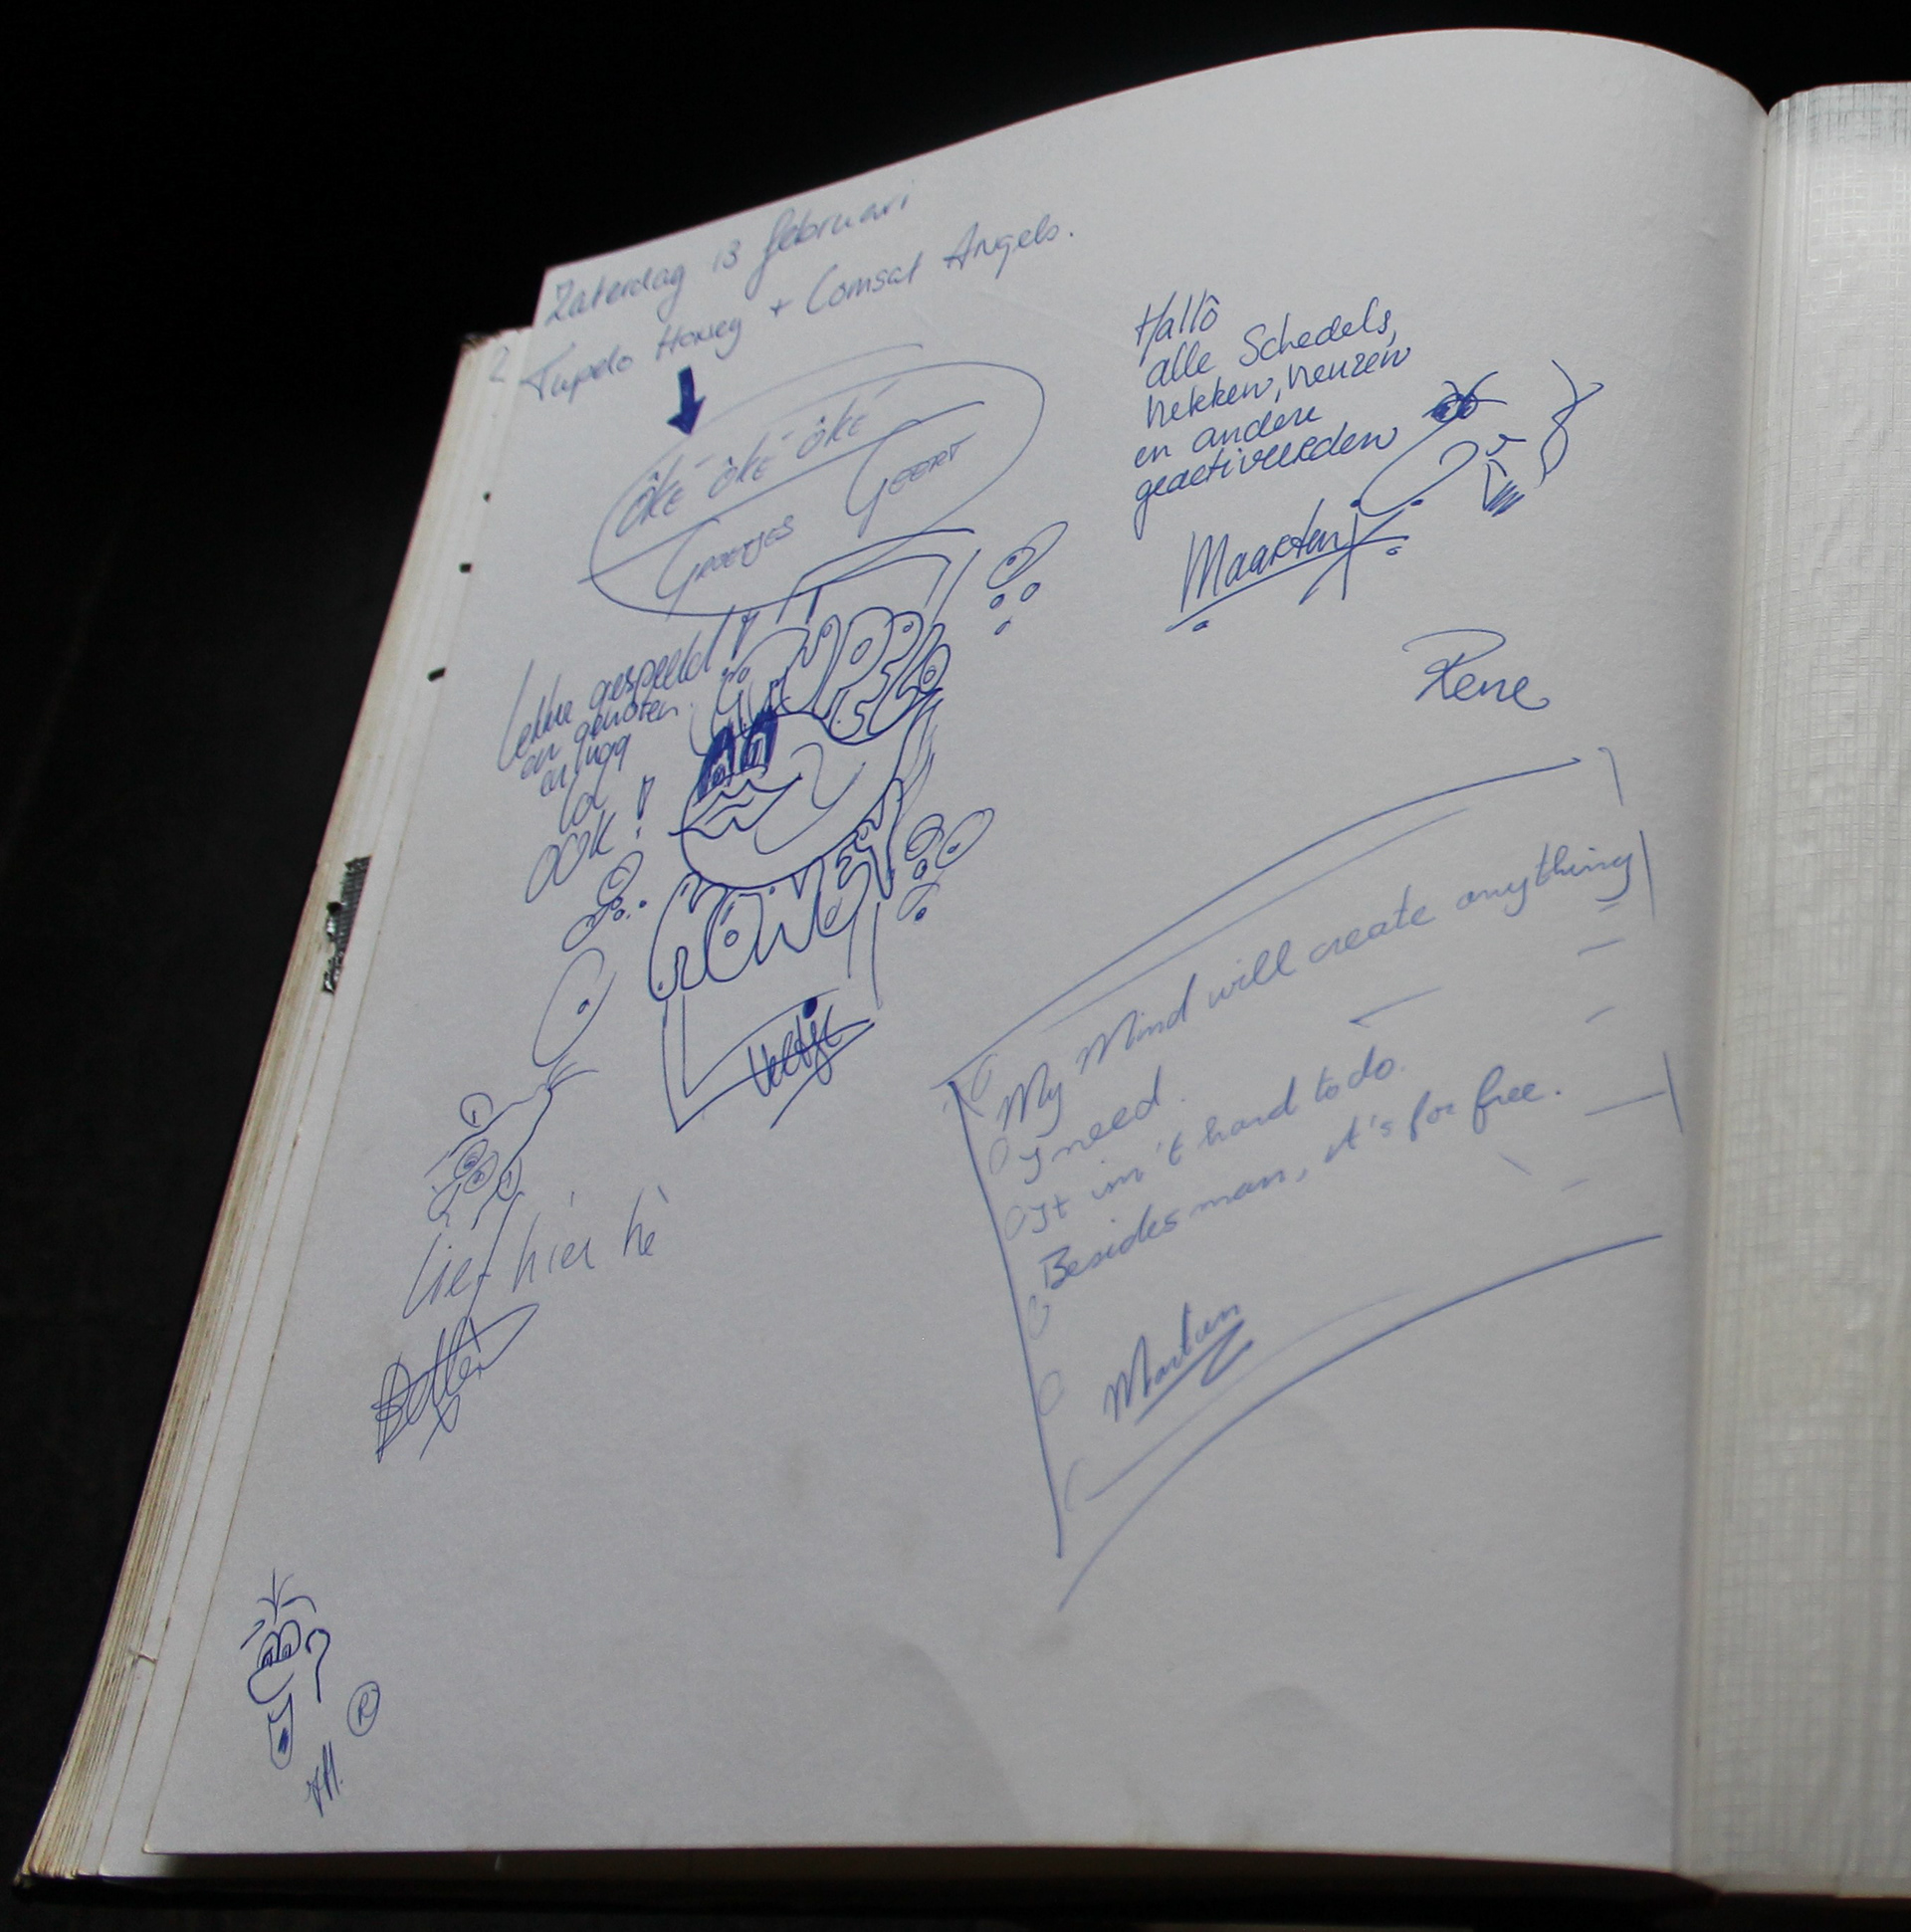 Zaterdag 13 februari
Tupelo Honey + Comsat Angels.
ôké ôké ôké
Groetjes Geert
Hallô
alle Schedels,
nekken, neuzen
en andere
geactiveerden
Maarten
Rene
Lekke gespeeld!
en genoten.
en
lol
ook!
TUPELO
HONEY
My Mind will create anything
I need.
It isn't hard to do.
Besides man, it's for free.
Lief hier hè
®